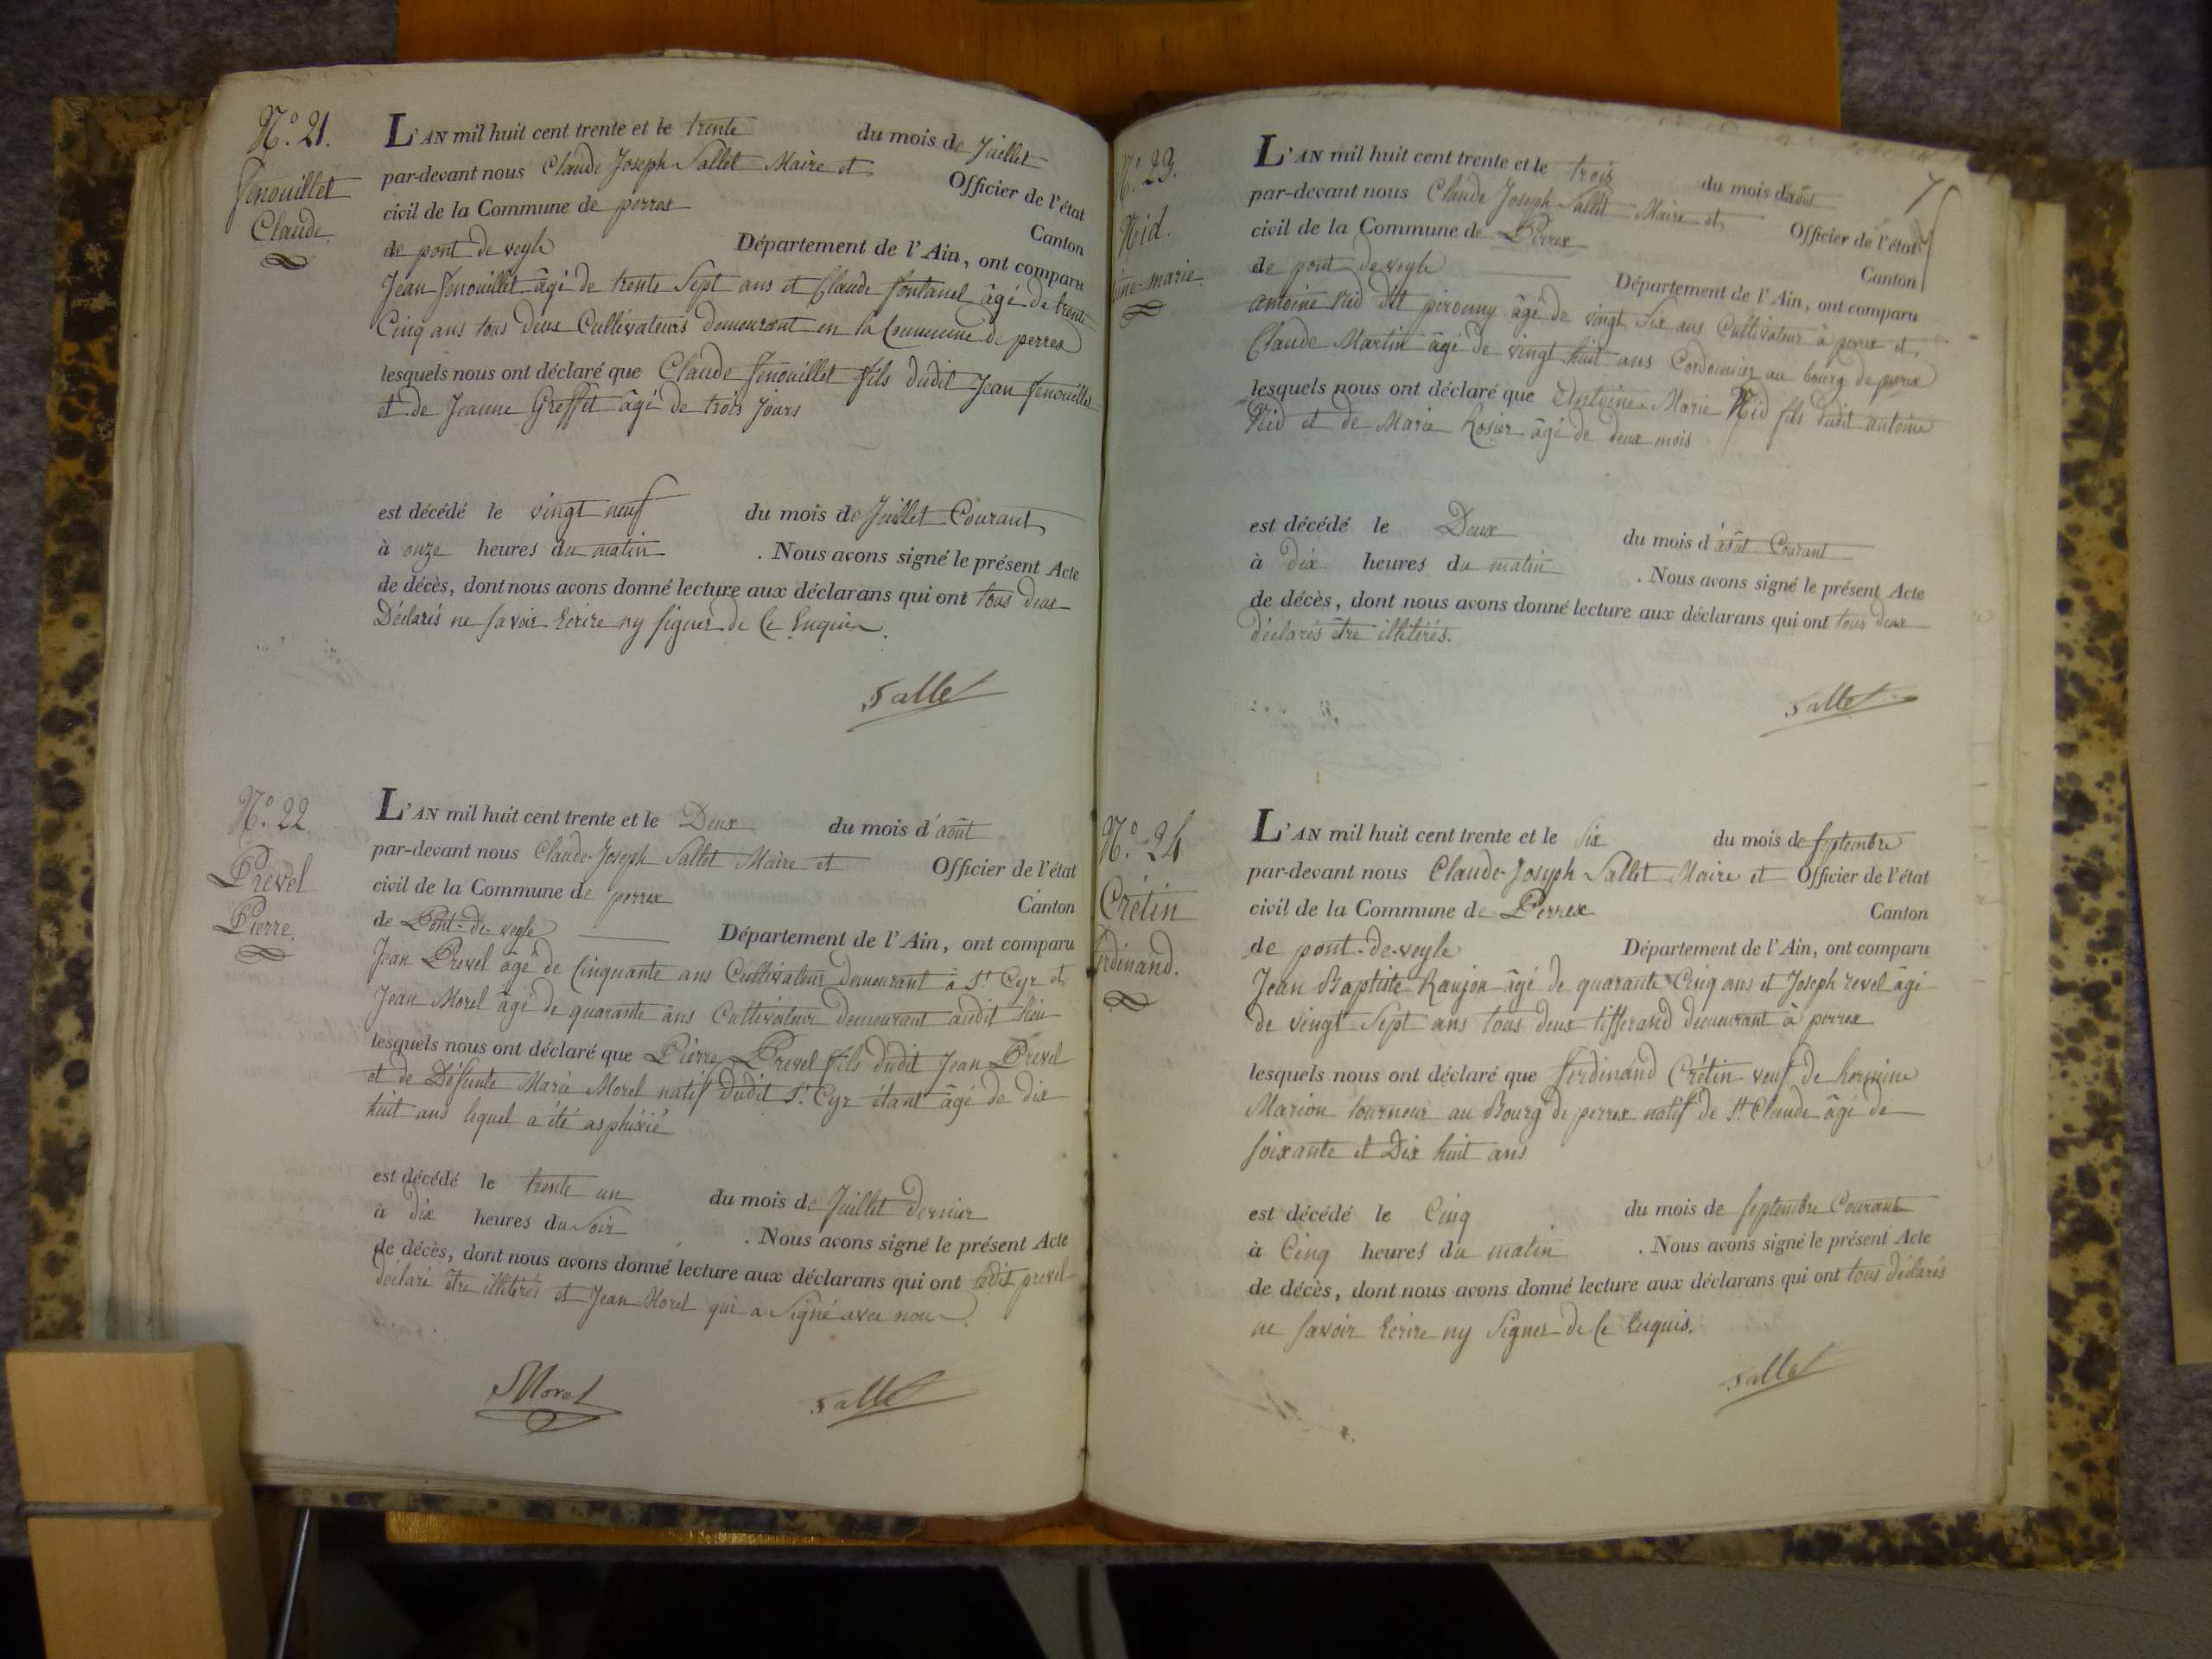 N.° 21.
Fenouillet
Claude.
L'AN mil huit cent trente et le trente du mois de Juillet
par-devant nous Claude Joseph Sallet Maire et Officier de l'état
civil de la Commune de perrex Canton
de pont de veyle Département de l'Ain, ont comparu
Jean Fenouillet âgé de trente Sept ans et Claude fontanel âgé de trente
Cinq ans tous deux Cultivateurs demeurant en la Commune de perrex
lesquels nous ont déclaré que Claude fenouillet fils dudit Jean fenouillet
et de Jeanne Greffet âgé de trois Jours
est décédé le vingt neuf du mois de Juillet Courant
à onze heures du matin . Nous avons signé le présent Acte
de décès, dont nous avons donné lecture aux déclarans qui ont tous deux
Déclarés ne savoir Ecrire ny signer de Ce Enquis.
Sallet
N.° 22
Prevel
Pierre.
L'AN mil huit cent trente et le Deux du mois d'août
par-devant nous Claude-Joseph Sallet Maire et Officier de l'état
civil de la Commune de perrex Canton
de Pont-de-veyle Département de l'Ain, ont comparu
Jean Prevel âgé de Cinquante ans Cultivateur demeurant à St Cyr et
Jean Morel âgé de quarante ans Cultivateur demeurant audit lieu
lesquels nous ont déclaré que Pierre Prevel fils dudit Jean Prevel
et de Défunte Marie Morel natif dudit St. Cyr étant âgé de dix
huit ans lequel a été asphixié
est décédé le trente un du mois de Juillet dernier
à dix heures du Soir . Nous avons signé le présent Acte
de décès, dont nous avons donné lecture aux déclarans qui ont ledit prevel
déclaré être illitérés et Jean Morel qui a Signé avec nous.
Morel Sallet
N.° 23.
Nid.
ine-marie.
L'AN mil huit cent trente et le trois du mois d'août
par-devant nous Claude Joseph Sallet Maire et Officier de l'état
civil de la Commune de Perrex Canton
de pont de veyle Département de l'Ain, ont comparu
antoine Nid dit pirouny âgé de vingt Six ans Cultivateur à perrex et
Claude Martin âgé de vingt huit ans Cordonnier au bourg de perrex
lesquels nous ont déclaré que Antoine-Marie Nid fils dudit antoine
Nid et de Marie Rosier âgé de deux mois
est décédé le Deux du mois d'août Courant
à dix heures du matin . Nous avons signé le présent Acte
de décès, dont nous avons donné lecture aux déclarans qui ont tous deux
déclarés être illitérés.
Sallet
N.° 24
Crétin
rdinand.
L'AN mil huit cent trente et le Six du mois de Septembre
par-devant nous Claude-Joseph Sallet Maire et Officier de l'état
civil de la Commune de Perrex Canton
de pont-de-veyle Département de l'Ain, ont comparu
Jean Baptiste Ranjon âgé de quarante Cinq ans et Joseph revel âgé
de vingt Sept ans tous deux tisserand demeurant à perrex
lesquels nous ont déclaré que ferdinand Crétin veuf de hermine
Marion tourneur au Bourg de perrex natif de St Claude âgé de
soixante et Dix huit ans
est décédé le Cinq du mois de septembre Courant
à Cinq heures du matin . Nous avons signé le présent Acte
de décès, dont nous avons donné lecture aux déclarans qui ont tous déclarés
ne savoir Ecrire ny Signer de Ce Enquis.
Sallet